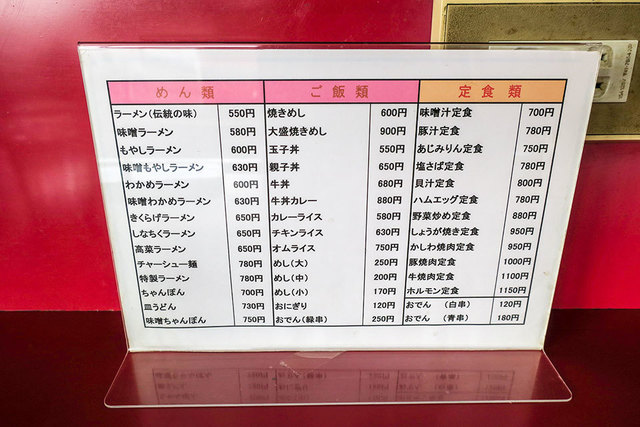 めん類
ラーメン(伝統の味) 550円
味噌ラーメン 580円
もやしラーメン 600円
味噌もやしラーメン 630円
わかめラーメン 600円
味噌わかめラーメン 630円
きくらげラーメン 650円
しなちくラーメン 650円
高菜ラーメン 650円
チャーシュー麺 780円
特製ラーメン 780円
ちゃんぽん 700円
皿うどん 730円
味噌ちゃんぽん 750円
ご飯類
焼きめし 600円
大盛焼きめし 900円
玉子丼 550円
親子丼 650円
牛丼 680円
牛丼カレー 880円
カレーライス 580円
チキンライス 630円
オムライス 750円
めし(大) 250円
めし(中) 200円
めし(小) 170円
おにぎり 120円
おでん(緑串) 250円
定食類
味噌汁定食 700円
豚汁定食 780円
あじみりん定食 750円
塩さば定食 780円
貝汁定食 800円
ハムエッグ定食 780円
野菜炒め定食 880円
しょうが焼き定食 950円
かしわ焼肉定食 950円
豚焼肉定食 1000円
牛焼肉定食 1100円
ホルモン定食 1150円
おでん (白串) 120円
おでん (青串) 180円